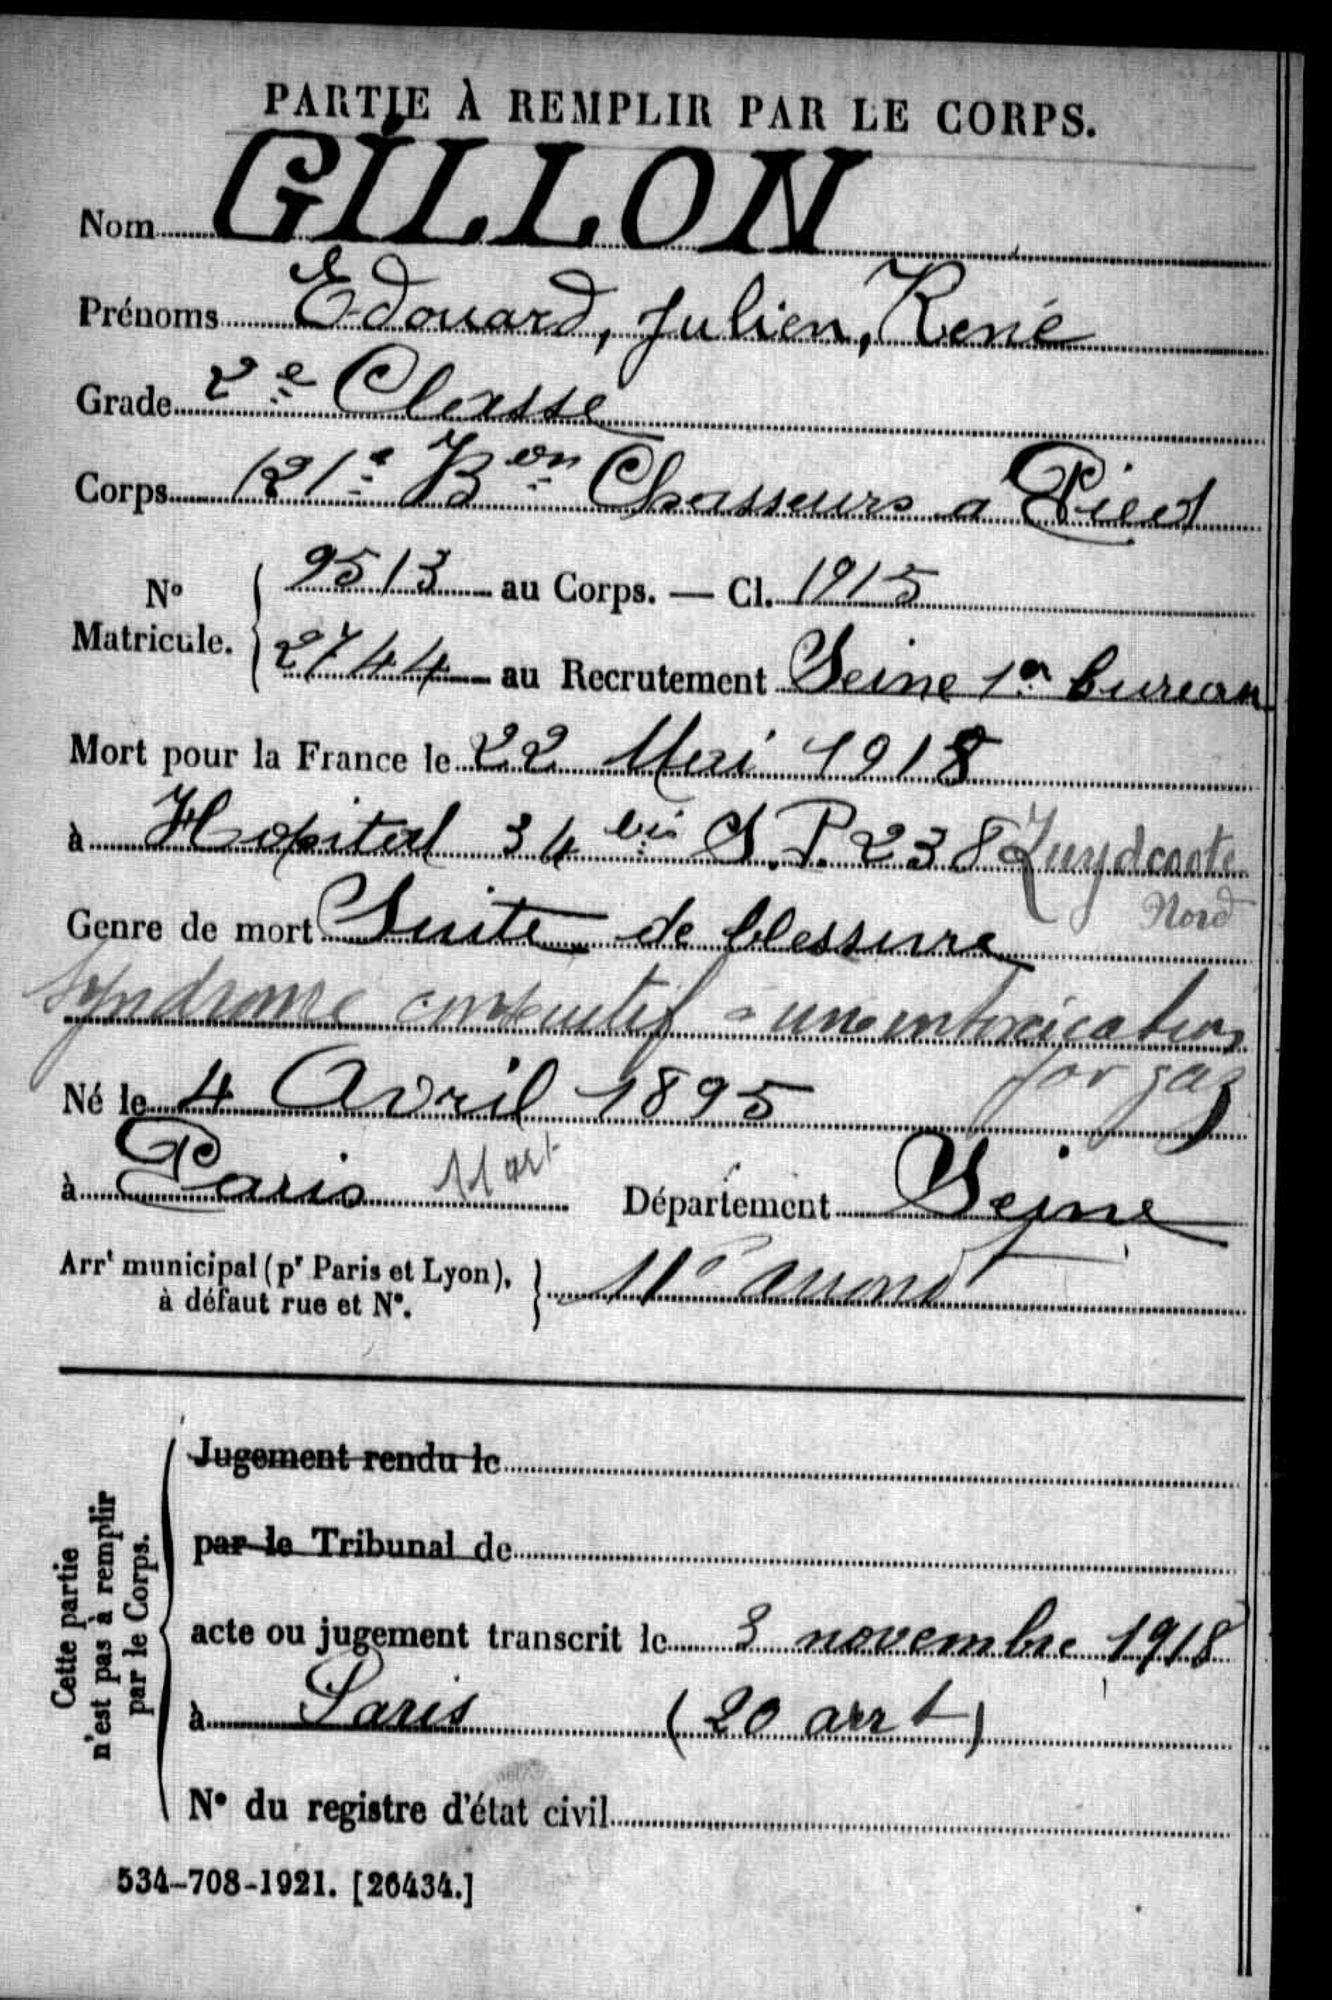 PARTIE À REMPLIR PAR LE CORPS.
Nom GILLON
Prénoms Edouard, Julien, René
Grade 2e Classe
Corps 121e Bon Chasseurs a Pied
No Matricule. { 9513 au Corps. — Cl. 1915
2744 au Recrutement Seine 1er bureau
Mort pour la France le 22 Mai 1918
à Hopital 34 bis S.P. 238 Zuydcoote
Nord
Genre de mort Suite de blessure
Syndrome consécutif à une intoxication
par gaz
Né le 4 Avril 1895
à Paris 11 arrt Département Seine
Arrt municipal (pr Paris et Lyon), à défaut rue et No. } 11e arrond
Cette partie n'est pas à remplir par le Corps.
Jugement rendu le
par le Tribunal de
acte ou jugement transcrit le 3 novembre 1918
à Paris (20 arrt)
No du registre d'état civil
534-708-1921. [26434.]